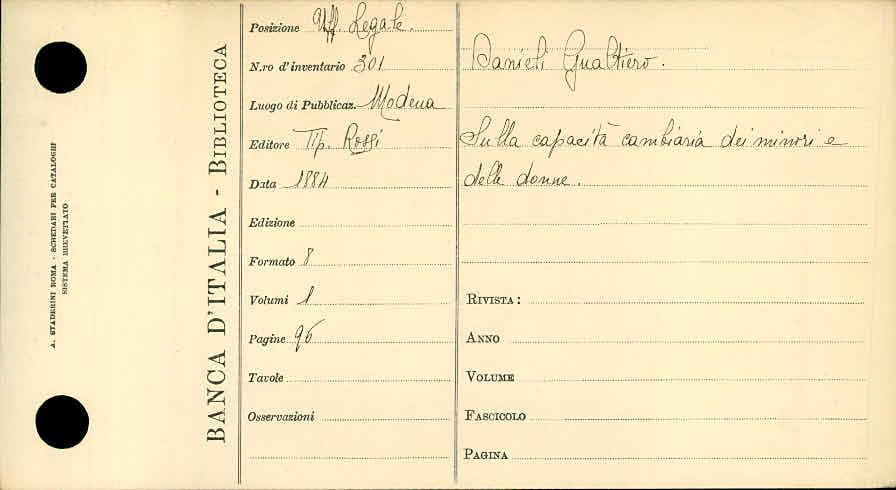 A. STADERINI ROMA - SCHEDARI PER CATALOGHI
SISTEMA BREVETTATO
BANCA D'ITALIA - BIBLIOTECA
Posizione Uff. Legale.
N.ro d'inventario 301
Luogo di Pubblicaz. Modena
Editore Tip. Rossi
Data 1884
Edizione
Formato 8
Volumi 1
Pagine 96
Tavole
Osservazioni
Danieli Gualtiero.
Sulla capacità cambiaria dei minori e
delle donne.
RIVISTA:
ANNO
VOLUME
FASCICOLO
PAGINA